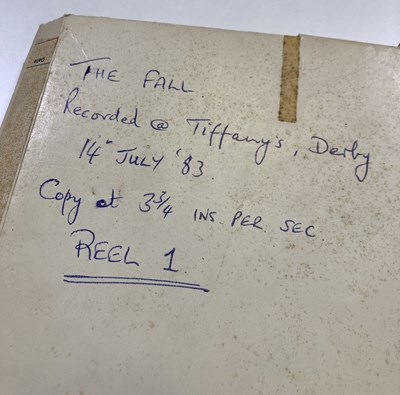 THE FALL.
Recorded @ Tiffany's, Derby
14" JULY '83
Copy at 3 3/4 INS. PER SEC
REEL 1